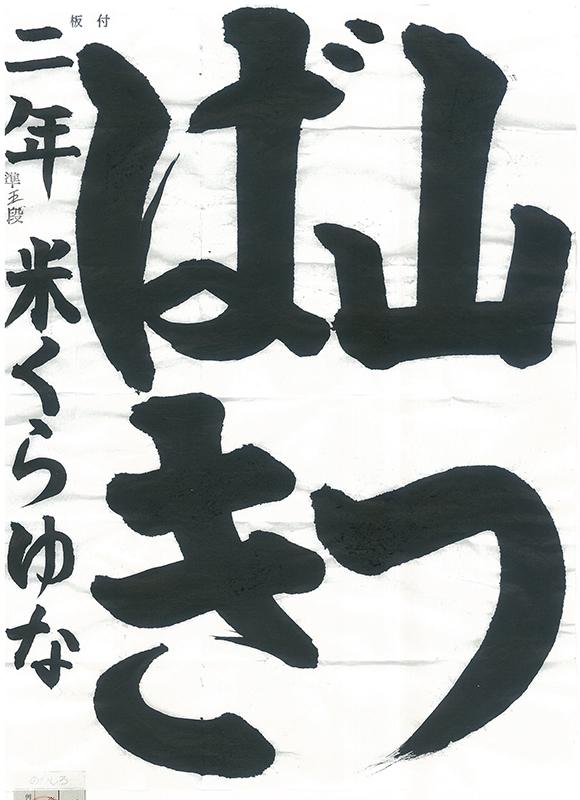 山つ
ばき
二年 米くらゆな
準五段
板付